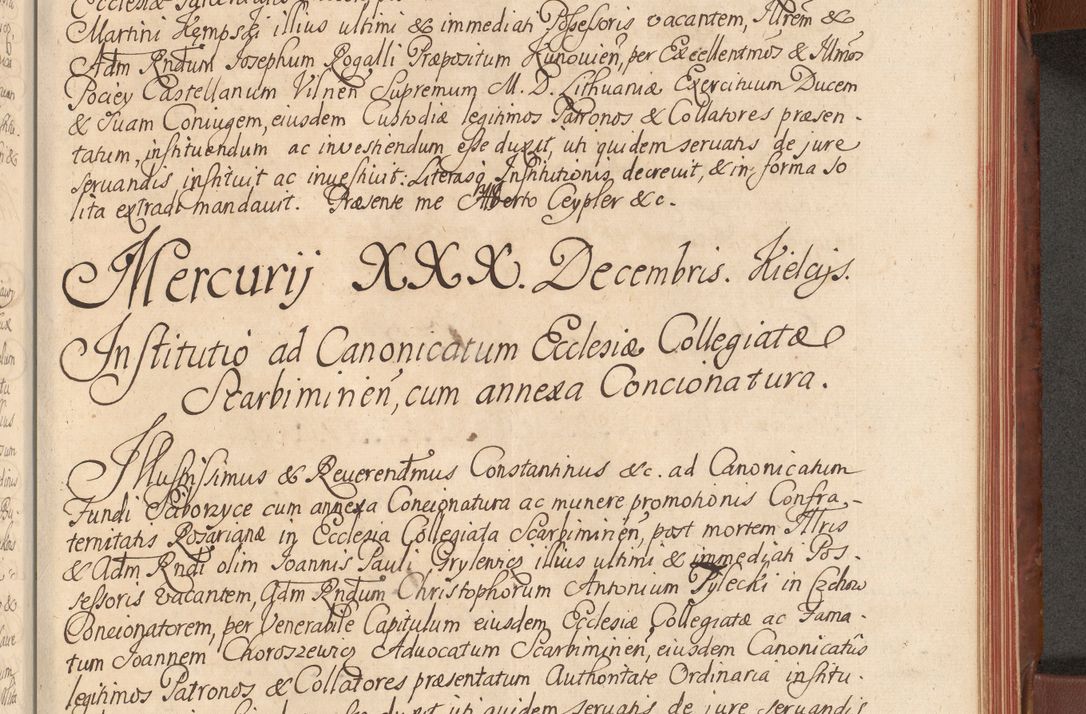 Martini Kępski illius ultimi & immediati Possessoris vacantem, Illrem &
Adm Rndum Josephum Rogalli Præpositum Kunovien, per Excellentmos & Illmos
Pociey Castellanum Vilnen Supremum M. D. Lithuaniæ Exercituum Ducem
& Suam Coniugem, eiusdem Custodiæ legitimos Patronos & Collatores præsen-
tatum, instituendum ac investiendum esse duxit, uti quidem servatis de jure
servandis instituit ac investivit: Literasq Institutionis decrevit, & in forma so
lita extradi mandavit. Præsente me Alberto Ceypler &c.
Mercurij XXX. Decembris. Kielcijs.
Institutio ad Canonicatum Ecclesiæ Collegiatæ
Scarbiminen, cum annexa Concionatura.
Illustrissimus & Reverendmus Constantinus &c. ad Canonicatum
Fundi Gaborzyce cum annexa Concionatura ac munere promotionis Confra-
ternitatis Rosarianæ in Ecclesia Collegiata Scarbiminen, post mortem Illris
& Adm Rndi olim Joannis Pauli Grylewicz illius ultimi & immediati Pos-
sessoris vacantem, Adm Rndum Christophorum Antonium Pylecki in Czchow
Concionatorem, per Venerabile Capitulum eiusdem Ecclesiæ Collegiatæ ac Fama-
tum Joannem Choroszewicz Advocatum Scarbiminen, eiusdem Canonicatus
legitimos Patronos & Collatores præsentatum Authoritate Ordinaria institu-
duxit uti quidem servatis de jure servandis